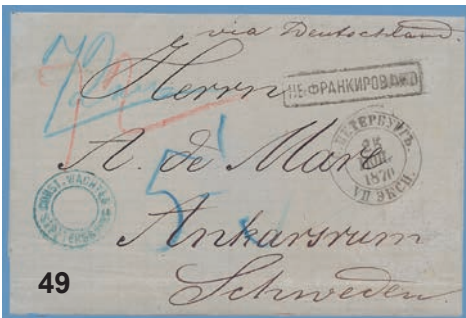 via Deutschland.
Herrn
НЕФРАНКИРОВАНО
ПЕТЕРБУРГЪ.
25
1870
VII ЭКСП.
A. de Maré
CONST. WACHTER
ST PETERSBURG
5
Ankarsrum
Schweden.
49